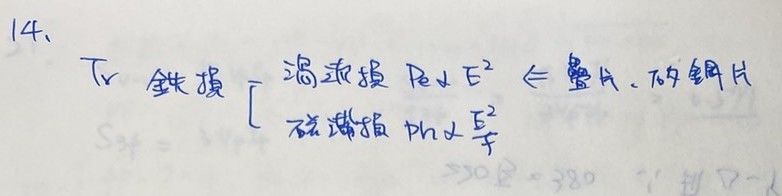 14、
Tr 鉄損 渦流損 Pe∝E² ⇐ 疊片、矽鋼片
磁滯損 Ph∝E²/f